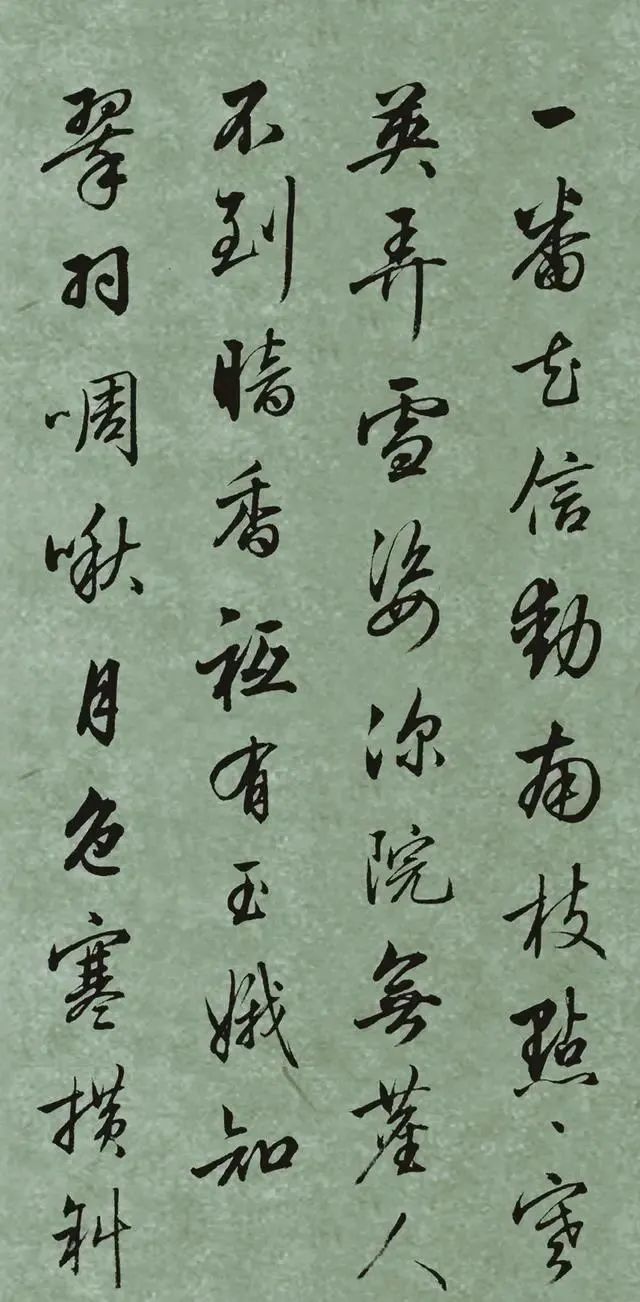 一番花信動南枝點、寒
英弄雪姿深院無塵人
不到暗香祗有玉娥知
翠羽啁啾月色寒橫斜